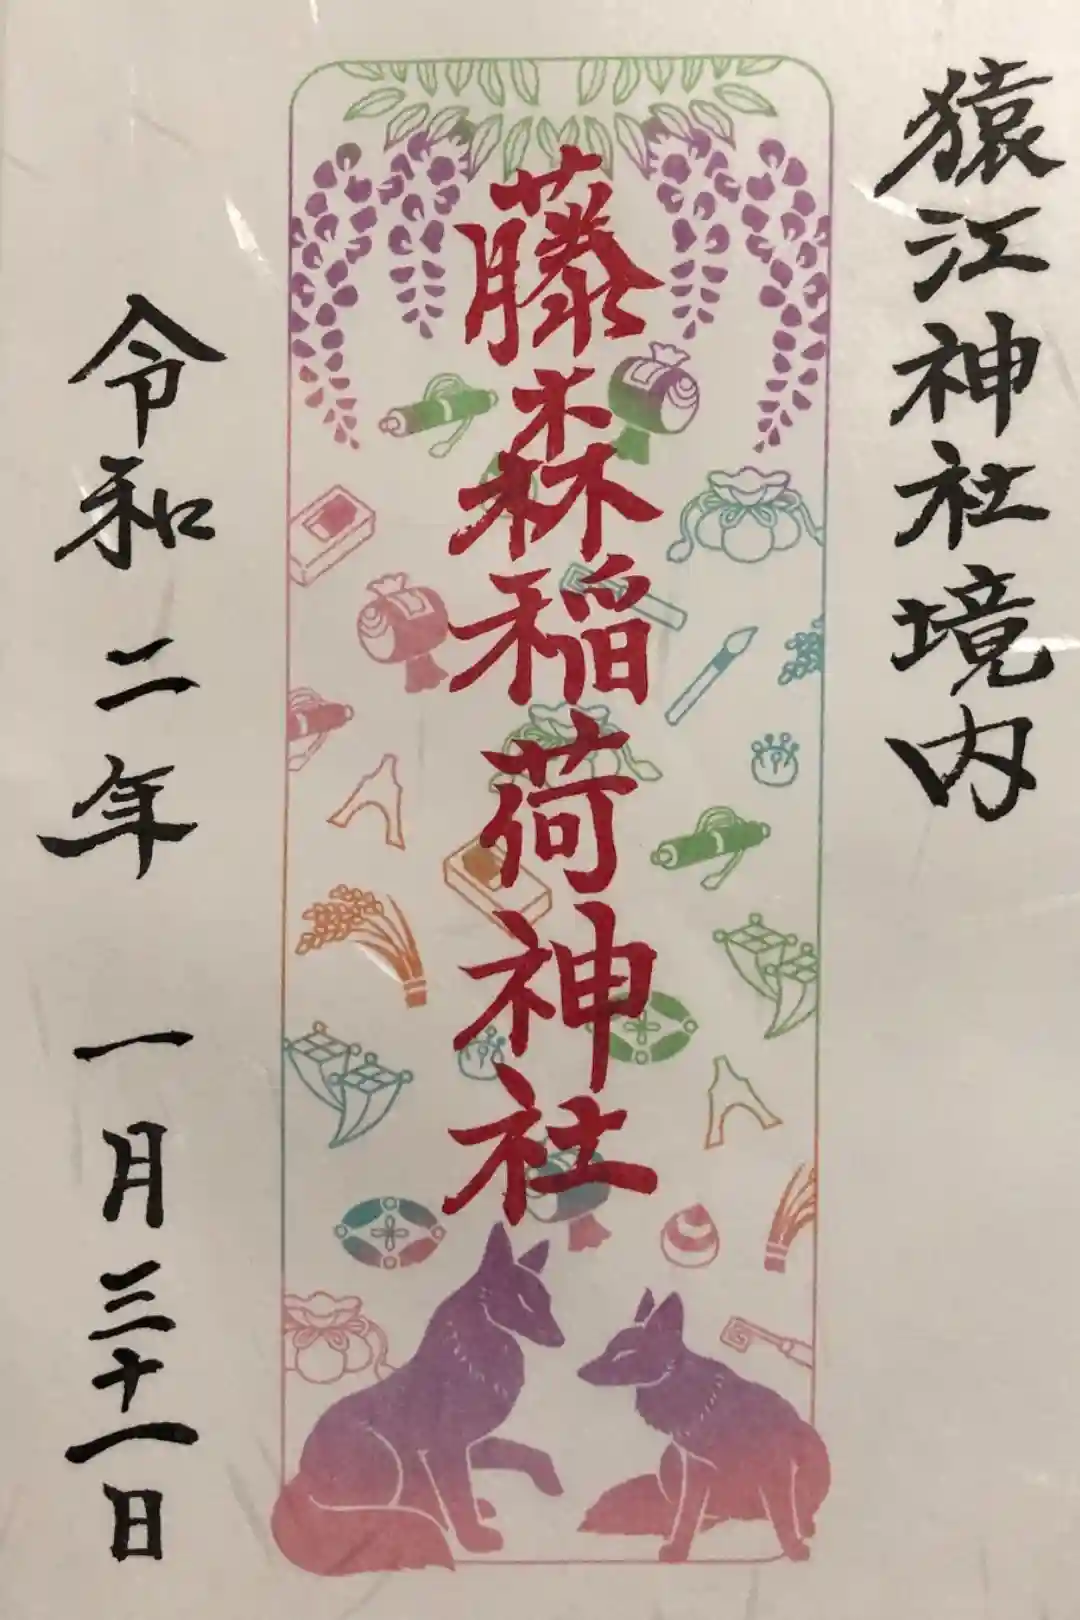 猿江神社境内
藤森稲荷神社
令和二年 一月三十一日